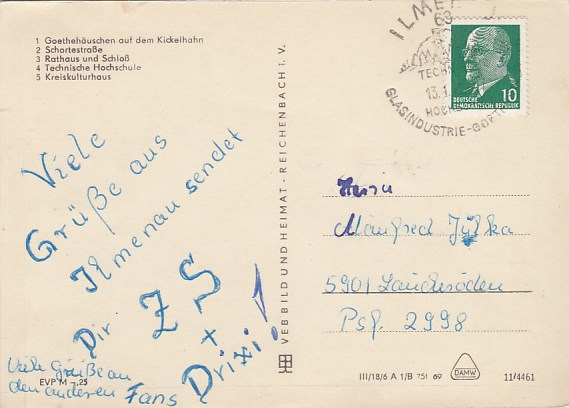 1 Goethehäuschen auf dem Kickelhahn
2 Schortestraße
3 Rathaus und Schloß
4 Technische Hochschule
5 Kreiskulturhaus
Viele
Grüße aus
Ilmenau sendet
Dir ZS
+ Drixi!
Viele Grüße an
den anderen Fans
EVP M -,25
VEB BILD UND HEIMAT - REICHENBACH I. V.
63
TECHN
13.1
HOCH
GLASINDUSTRIE-
10
DEUTSCHE
DEMOKRATISCHE REPUBLIK
Herrn
Manfred Jülka
5901 Lauchröden
Psf. 2998
III/18/6 A 1/B 751 69
DAMW
11/4461